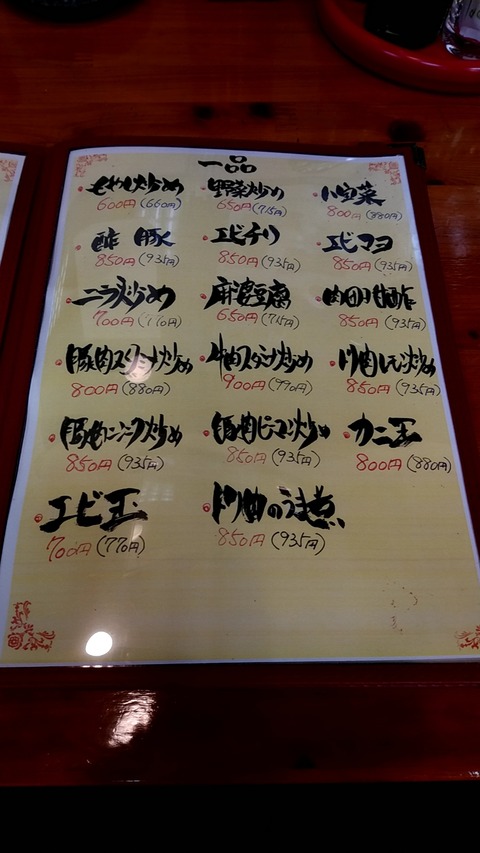 一品
もやし炒め 野菜炒め 八宝菜
600円(660円) 650円(715円) 800円(880円)
酢豚 エビチリ エビマヨ
850円(935円) 850円(935円) 850円(935円)
ニラ炒め 麻婆豆腐 肉団子甘酢
700円(770円) 650円(715円) 850円(935円)
豚肉スタミナ炒め 牛肉スタミナ炒め トリ肉レモン炒め
800円(880円) 900円(990円) 850円(935円)
豚肉ニンニク炒め 豚肉ピーマン炒め カニ玉
850円(935円) 850円(935円) 800円(880円)
エビ玉 トリ肉のうま煮
700円(770円) 850円(935円)